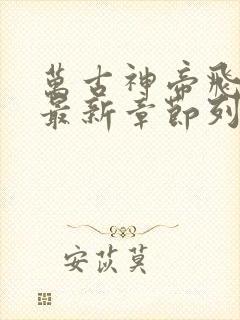 萬古神帝飛
最新章節列
安苡莫